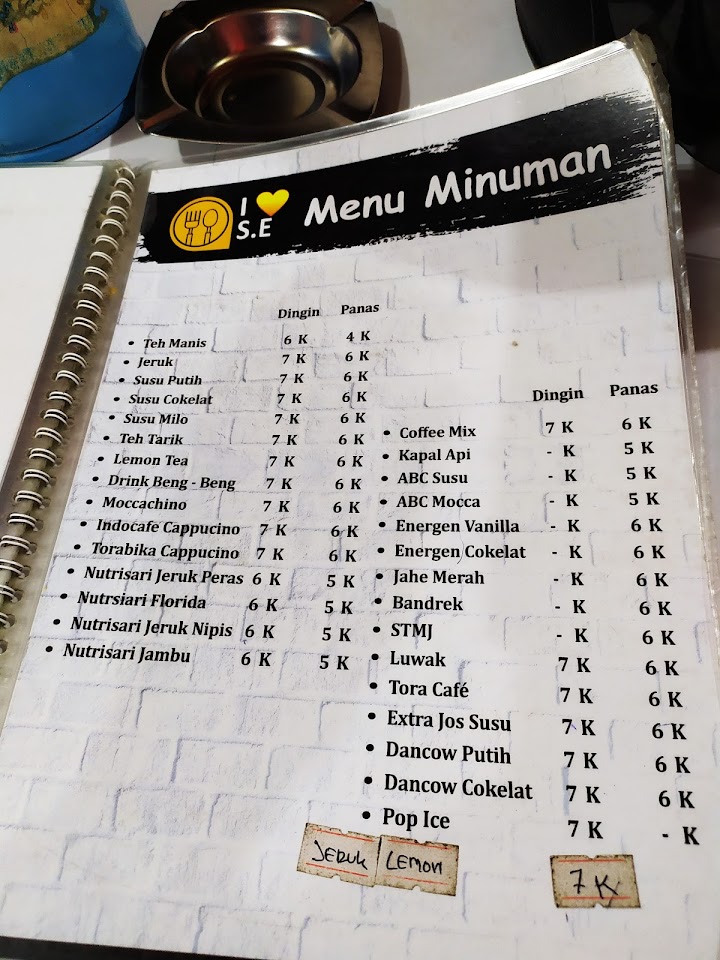 I S.E
Menu Minuman
Dingin Panas
• Teh Manis 6 K 4 K
• Jeruk 7 K 6 K
• Susu Putih 7 K 6 K
• Susu Cokelat 7 K 6 K
• Susu Milo 7 K 6 K
• Teh Tarik 7 K 6 K
• Lemon Tea 7 K 6 K
• Drink Beng - Beng 7 K 6 K
• Moccachino 7 K 6 K
• Indocafe Cappucino 7 K 6 K
• Torabika Cappucino 7 K 6 K
• Nutrisari Jeruk Peras 6 K 5 K
• Nutrsiari Florida 6 K 5 K
• Nutrisari Jeruk Nipis 6 K 5 K
• Nutrisari Jambu 6 K 5 K
Dingin Panas
• Coffee Mix 7 K 6 K
• Kapal Api - K 5 K
• ABC Susu - K 5 K
• ABC Mocca - K 5 K
• Energen Vanilla - K 6 K
• Energen Cokelat - K 6 K
• Jahe Merah - K 6 K
• Bandrek - K 6 K
• STMJ - K 6 K
• Luwak 7 K 6 K
• Tora Café 7 K 6 K
• Extra Jos Susu 7 K 6 K
• Dancow Putih 7 K 6 K
• Dancow Cokelat 7 K 6 K
• Pop Ice 7 K - K
JERUK LEMON 7 K